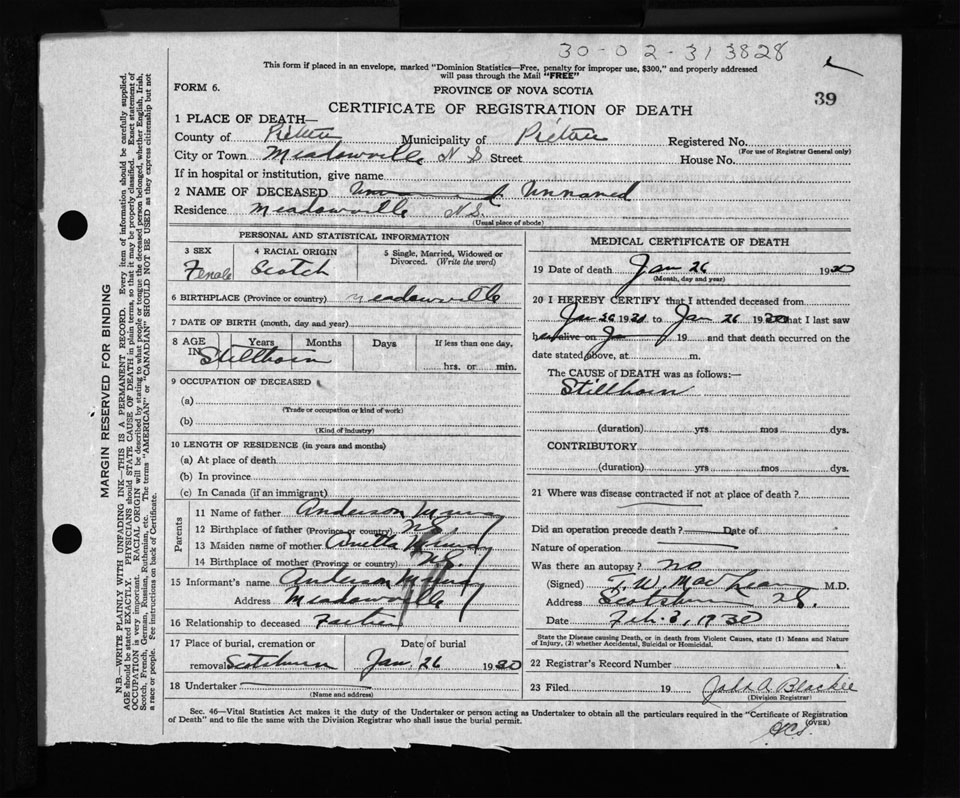 30-02-313828
This form if placed in an envelope, marked "Dominion Statistics—Free, penalty for improper use, $300," and properly addressed
will pass through the Mail "FREE"
39
FORM 6.
PROVINCE OF NOVA SCOTIA
CERTIFICATE OF REGISTRATION OF DEATH
1 PLACE OF DEATH—
County of Pictou Municipality of Pictou Registered No.
(For use of Registrar General only)
City or Town Meadowville N S Street House No.
If in hospital or institution, give name
2 NAME OF DECEASED Unnamed
Residence Meadowville N.S.
(Usual place of abode)
PERSONAL AND STATISTICAL INFORMATION
3 SEX 4 RACIAL ORIGIN 5 Single, Married, Widowed or
Divorced. (Write the word)
Female Scotch
6 BIRTHPLACE (Province or country) Meadowville
7 DATE OF BIRTH (month, day and year)
8 AGE Years Months Days If less than one day,
IN Stillborn hrs. or min.
9 OCCUPATION OF DECEASED
(a)
(Trade or occupation or kind of work)
(b)
(Kind of industry)
10 LENGTH OF RESIDENCE (in years and months)
(a) At place of death
(b) In province
(c) In Canada (if an immigrant)
Parents
11 Name of father Anderson Murray
12 Birthplace of father (Province or country) N.S.
13 Maiden name of mother Murray
14 Birthplace of mother (Province or country) N.S.
15 Informant's name Anderson Murray
Address Meadowville
16 Relationship to deceased Father
17 Place of burial, cremation or Date of burial
removal Scotsburn Jan 26 1930
18 Undertaker
(Name and address)
MEDICAL CERTIFICATE OF DEATH
19 Date of death Jan 26 1930
(Month, day and year)
20 I HEREBY CERTIFY that I attended deceased from
Jan 26 1930 to Jan 26 1930 that I last saw
h alive on Ja 19 and that death occurred on the
date stated above, at m.
The CAUSE of DEATH was as follows:—
Stillborn
(duration) yrs mos dys.
CONTRIBUTORY
(duration) yrs mos dys.
21 Where was disease contracted if not at place of death?
Did an operation precede death? Date of
Nature of operation
Was there an autopsy? no
(Signed) T. W. MacLean M.D.
Address Scotsburn N.S.
Date Feb. 3, 1930
State the Disease causing Death, or in death from Violent Causes, state (1) Means and Nature
of Injury, (2) whether Accidental, Suicidal or Homicidal.
22 Registrar's Record Number
23 Filed 19 John A. Blackie
(Division Registrar)
Sec. 46—Vital Statistics Act makes it duty of the Undertaker or person acting as Undertaker to obtain all the particulars required in the "Certificate of Registration
of Death" and to file the same with the Division Registrar who shall issue the burial permit.
(OVER)
MARGIN RESERVED FOR BINDING
N.B.—WRITE PLAINLY WITH UNFADING INK—THIS IS A PERMANENT RECORD. Every item of information should be carefully supplied.
AGE should be stated EXACTLY. PHYSICIANS should STATE CAUSE OF DEATH in plain terms, so that it may be properly classified. Exact statement of
OCCUPATION is very important. RACIAL ORIGIN will be described by stating to what people or tongue the deceased person belonged, whether English, Irish,
Scotch, French, German, Russian, Ruthenian, etc. The terms "AMERICAN" or "CANADIAN" SHOULD NOT BE USED as they express citizenship but not
a race or people. See instructions on back of Certificate.